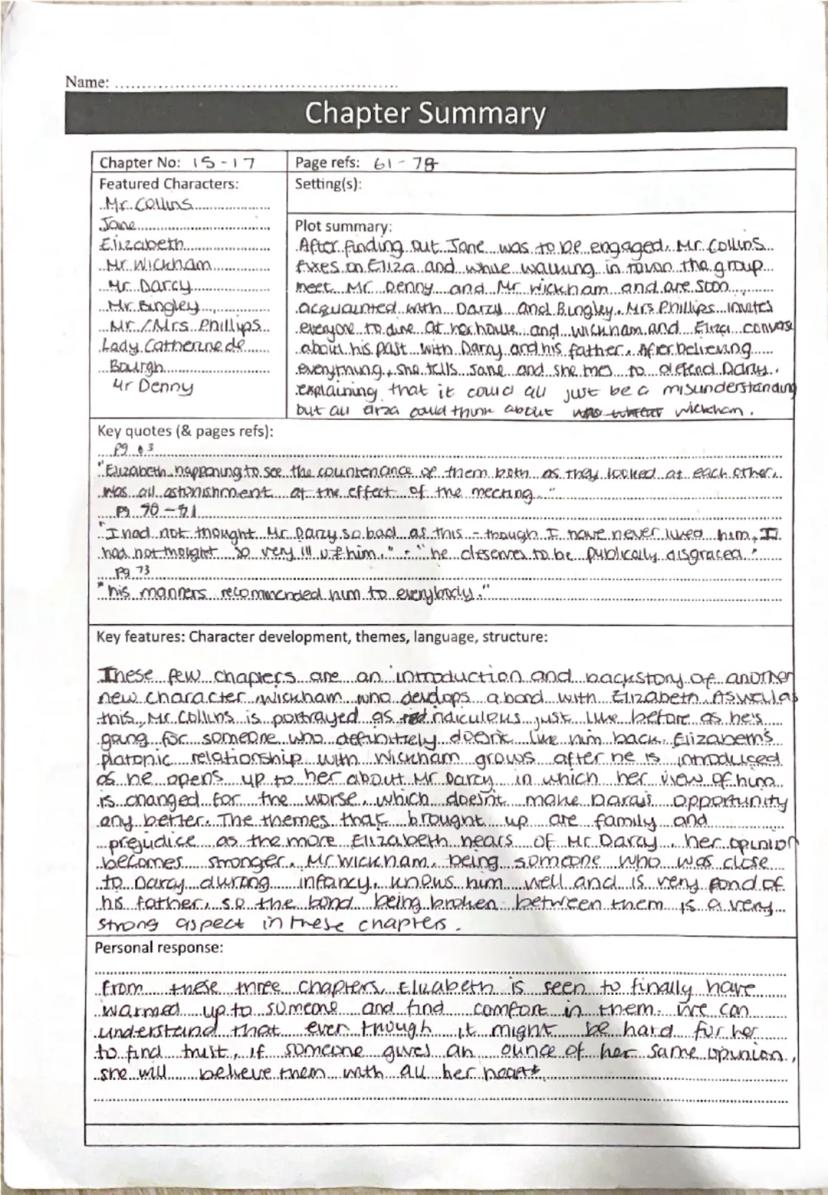 Name:
Chapter Summary
Chapter No: 15-17
Page refs: 61-78
Featured Characters:
Mr. Collins
Jane
Elizabeth
Mr Wickham
Mr. Darcy
Mr. Bingley
Mr./Mrs Phillips
Lady Catherine de
Bourgh
Mr Denny
Setting(s):
Plot summary:
After finding out Jane was to be engaged, Mr. Collins
fixes on Eliza and while walking in town the group
meet Mr Denny and Mr Wickham and are soon
acquainted with Darcy and Bingley. Mrs Phillips invites
everyone to dine at her house and Wickham and Eliza converse
about his past with Darcy and his father. After believing
everything, she tells Jane and she tries to defend Darcy,
explaining that it could all just be a misunderstanding
but all Eliza could think about was Wickham.
Key quotes (& pages refs):
Pg 63
"Elizabeth happening to see the countenance of them both as they looked at each other,
was all astonishment at the effect of the meeting."
Pg 70-71
"I had not thought Mr. Darcy so bad as this - though I have never liked him, I
had not thought so very ill of him." - "he deserves to be publically disgraced."
Pg 73
"his manners recommended him to everybody."
Key features: Character development, themes, language, structure:
These few chapters are an introduction and backstory of another
new character Wickham who develops a bond with Elizabeth. As well as
this, Mr. Collins is portrayed as ridiculous just like before as he's
going for someone who definitely doesn't like him back. Elizabeth's
platonic relationship with Wickham grows after he is introduced
as he opens up to her about Mr Darcy in which her view of him
is changed for the worse which doesn't make Darcy's opportunity
any better. The themes that brought up are family and
prejudice as the more Elizabeth hears of Mr Darcy, her opinion
becomes stronger. Mr Wickham, being someone who was close
to Darcy during infancy, knows him well and is very fond of
his father, so the bond being broken between them is a very
strong aspect in these chapters.
Personal response:
From these three chapters, Elizabeth is seen to finally have
warmed up to someone and find comfort in them. We can
understand that even though it might be hard for her
to find trust, if someone gives an ounce of her same opinion,
she will believe them with all her heart.